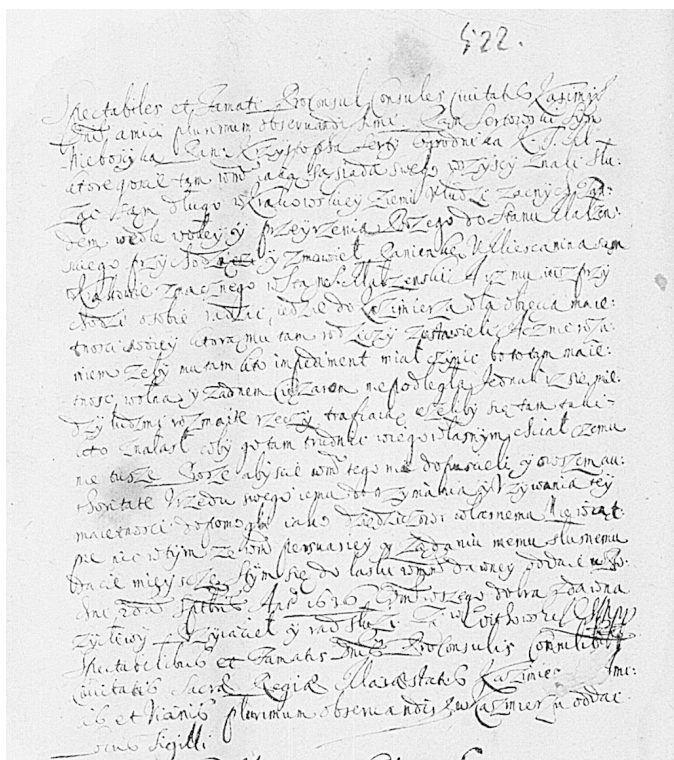 522.
Spectabiles et Famati Proconsul Consules Civitatis Casimir
Dni amici plurimum observandissimi. Pan Sertowski Syn
Nieboszyka Pana Krzysztopha Serty Ogrodnika K. J. M.
ktorego tam wm iako sąsiada swego wszyscy znali słu:
ząc tam długo w Krakowskiey Ziemi v ludzi zacnych Pan:
dem wedle woley y przeyrzenia Bozego do stanu Małzen:
skiego przychodzący zmowieł Panienkę v Miescanina sam
w Krakowie znacznego w stan Małzenski A yz mu iusz przy
chodzi o sobie radzic, iedzie do Kazimierza dla obięcia maię:
tnosci swoiey ktorą mu tam rodziczy zostawieli
zeby mu tam kto impediment miał czynic bo to tam maie:
tnosc wolna y zadnem cięzarom nie podległa Jednak iz się mie:
dzy ludzmi rozmaite rzeczy trafiaią esliby się tam taki
kto znalasł coby go tam trudnic w iego własnym chciał czemu
nie tuszę Proszę abyscie wm tego nie dopuscieli y owszem au:
thoritate Vrzędu swego iemu do otrzymania y vzywania tey
maiętnosci dopomogli iako dziedzicowi własnemu Nie wąt:
pię nic w tym ze wm y ządaniu memu słusznemu
dacie mieysce. Stym się do łaski wm dawney oddaię
Anno 1636 wm wszego dobra zdawna
zyczliwy Przyiaciel y rad słuzę
Spectabilibus et Famatis Dnis Proconsuli Consulibus
Civitatis Sacræ Regiæ Maiestatis Kazimier ami:
cis et vicinis plurimum observandis w Kazimierzu oddac
Locus Sigilli